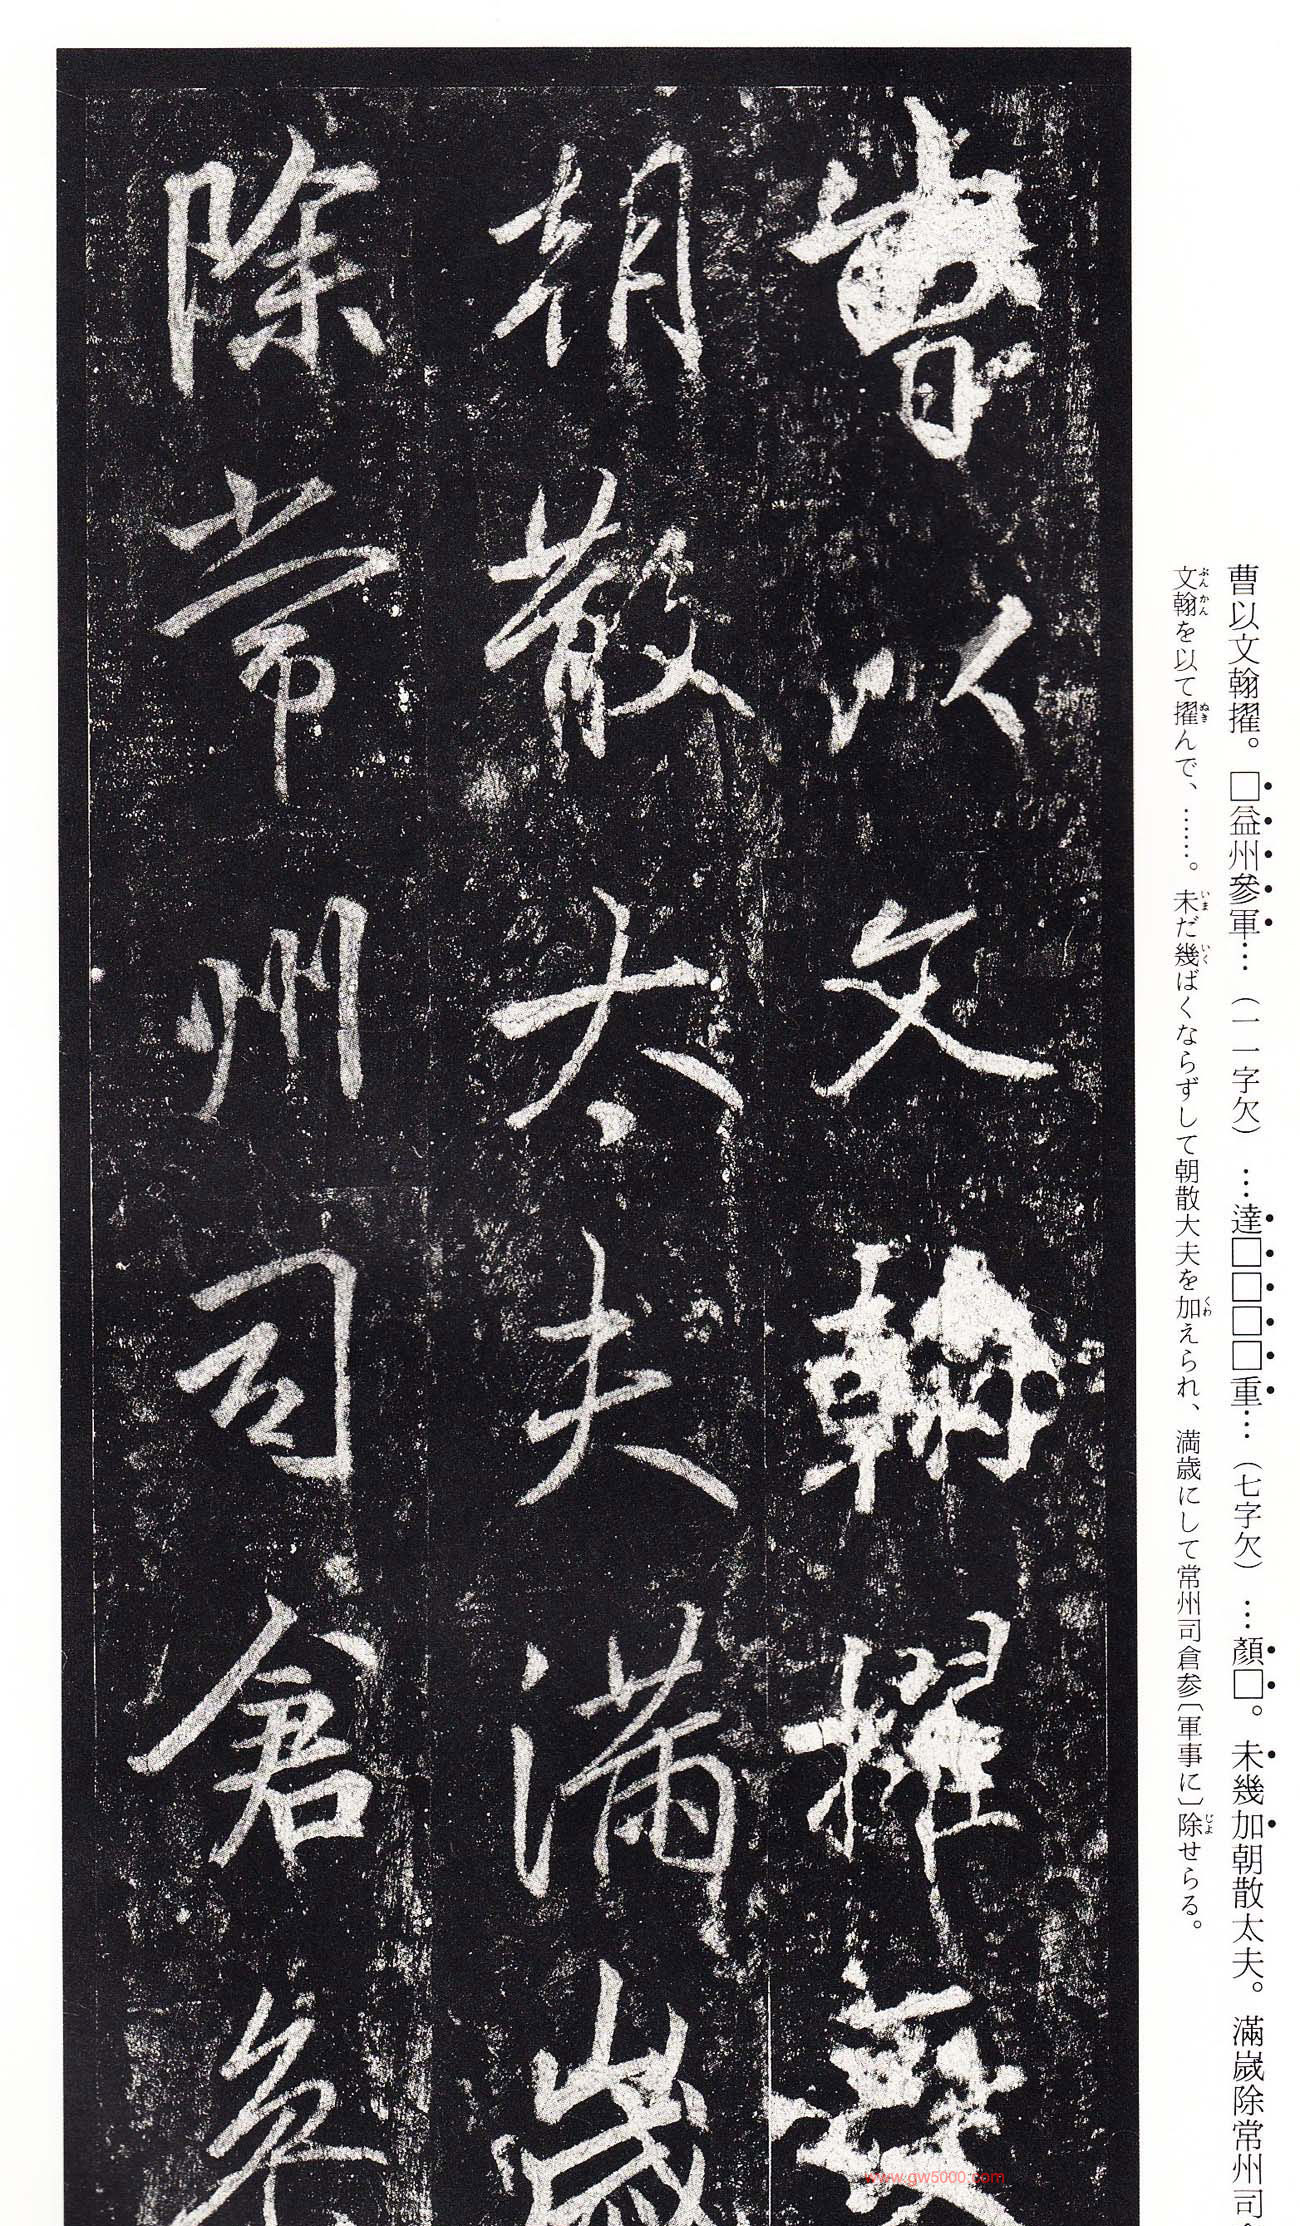 曹以文翰擢。□益州參軍…（一一字欠）…達□□□□重…（七字欠）…顏□。未幾加朝散太夫。滿歲除常州司
文翰を以て擢んで、……。未だ幾ばくならずして朝散大夫を加えられ、満歳にして常州司倉参〔軍事に〕除せらる。
曹以文翰擢
朝散太夫滿歲
除常州司倉參
www.gw5000.com